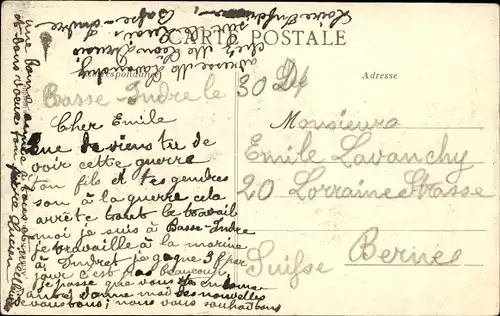 CARTE POSTALE
Correspondance
Adresse
Basse-Indre le 30 D
Cher Emile
que deviens tu de
voir cette guerre
ton fils et tes gendres
son à la guerre cela
arrète tout le travail
moi je suis à Basse-Indre
je travaille à la marine
à Indret je gagne 3 f par
jour c'est pas beaucoup
je pense que vous
autre donne moi des nouvelles
de vous tous, nous vous souhaitons
une bonne année à tous
Monsieur
Emile Lavanchy
20 Lorraine Strasse
Berne
Suisse
adresse
Lavanchy
chez
Basse-Indre
Loire Inférieure